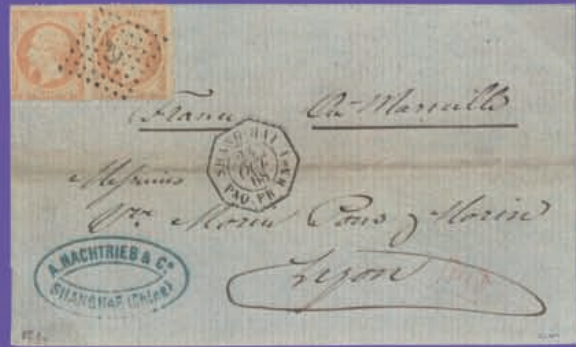 France via Marseille
SHANG-HAI
OCT
65
PAQ. FR.
Messieurs
Vve Morin Pons & Morin
Lyon
A. NACHTRIEB & Co
SHANGHAE (Chine)